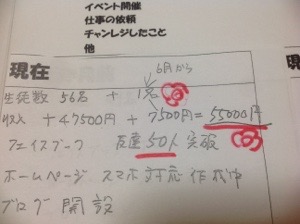 イベント開催
仕事の依頼
チャレンジしたこと
他
現在
6月から
生徒数 56名 + 1名
収入 +47500円 + 7500円 = 55000円
フェイスブック 友達 50人 突破
ホームページ スマホ対応 作成中
ブログ 開設